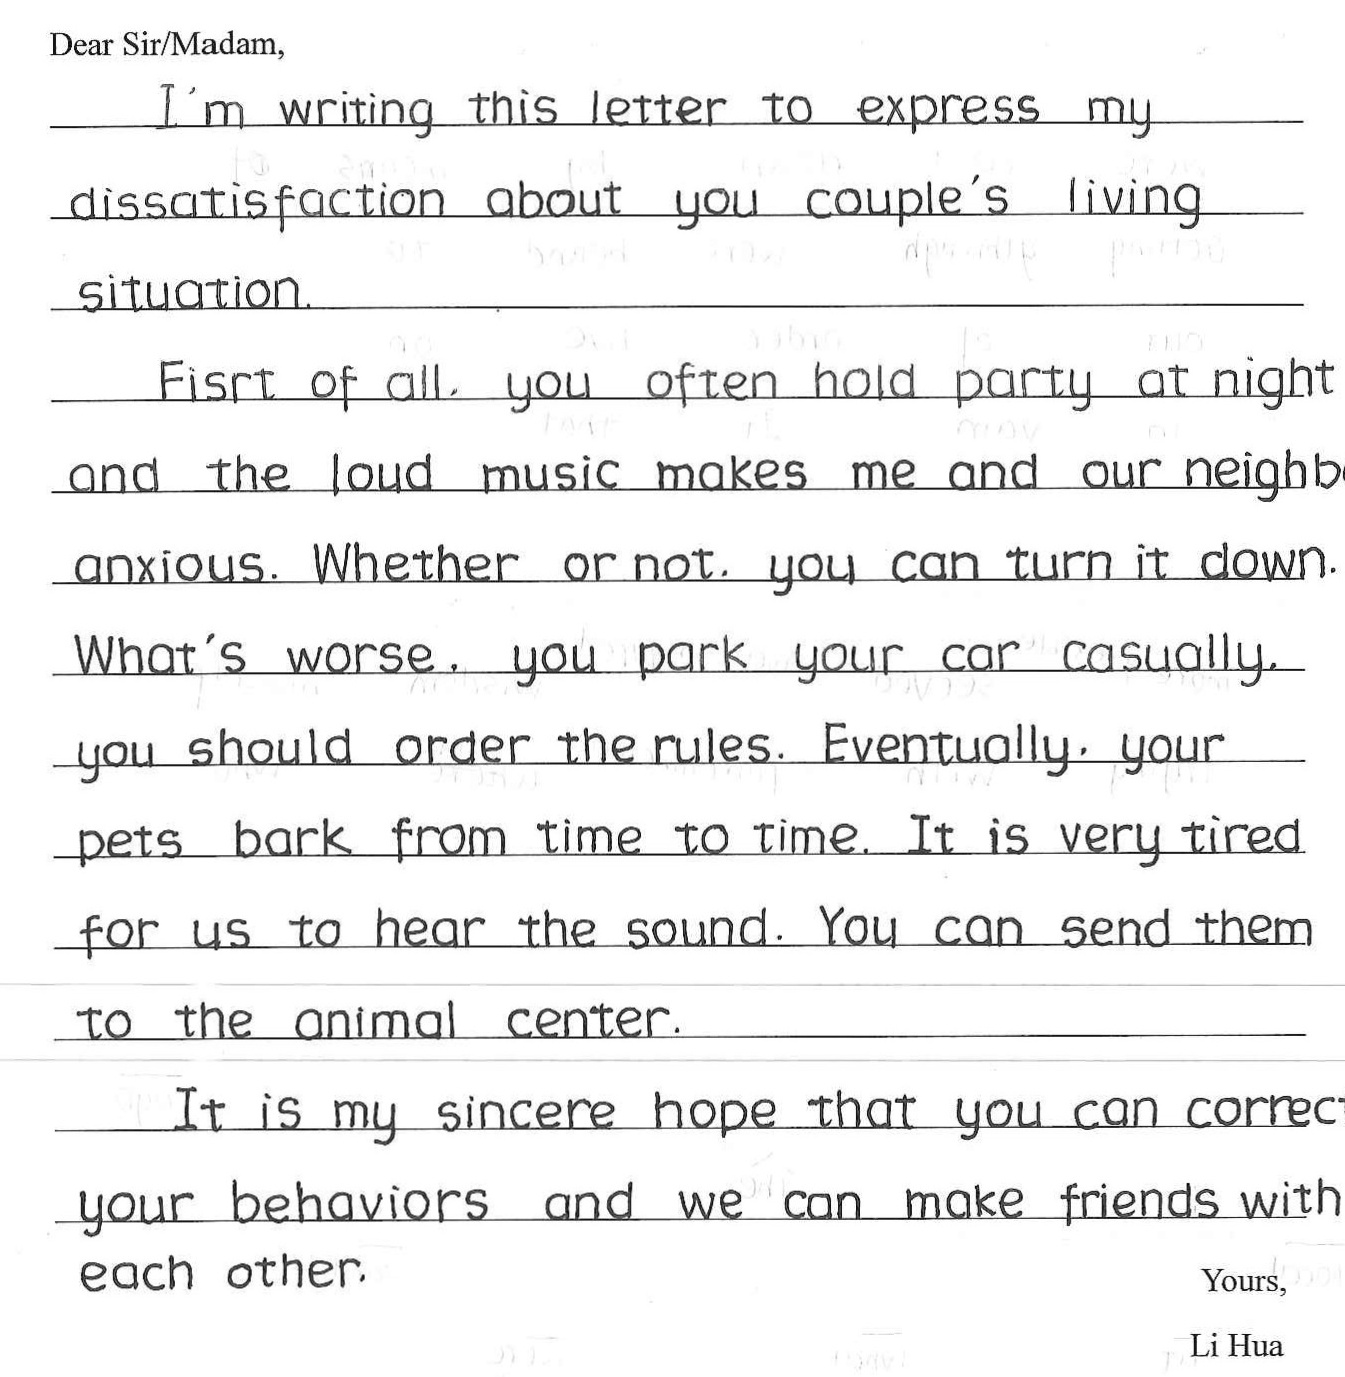 Dear Sir/Madam,
I'm writing this letter to express my
dissatisfaction about you couple's living
situation.
Fisrt of all, you often hold party at night
and the loud music makes me and our neighbo
anxious. Whether or not, you can turn it down.
What's worse, you park your car casually,
you should order the rules. Eventually, your
pets bark from time to time. It is very tired
for us to hear the sound. You can send them
to the animal center.
It is my sincere hope that you can correct
your behaviors and we can make friends with
each other.
Yours,
Li Hua